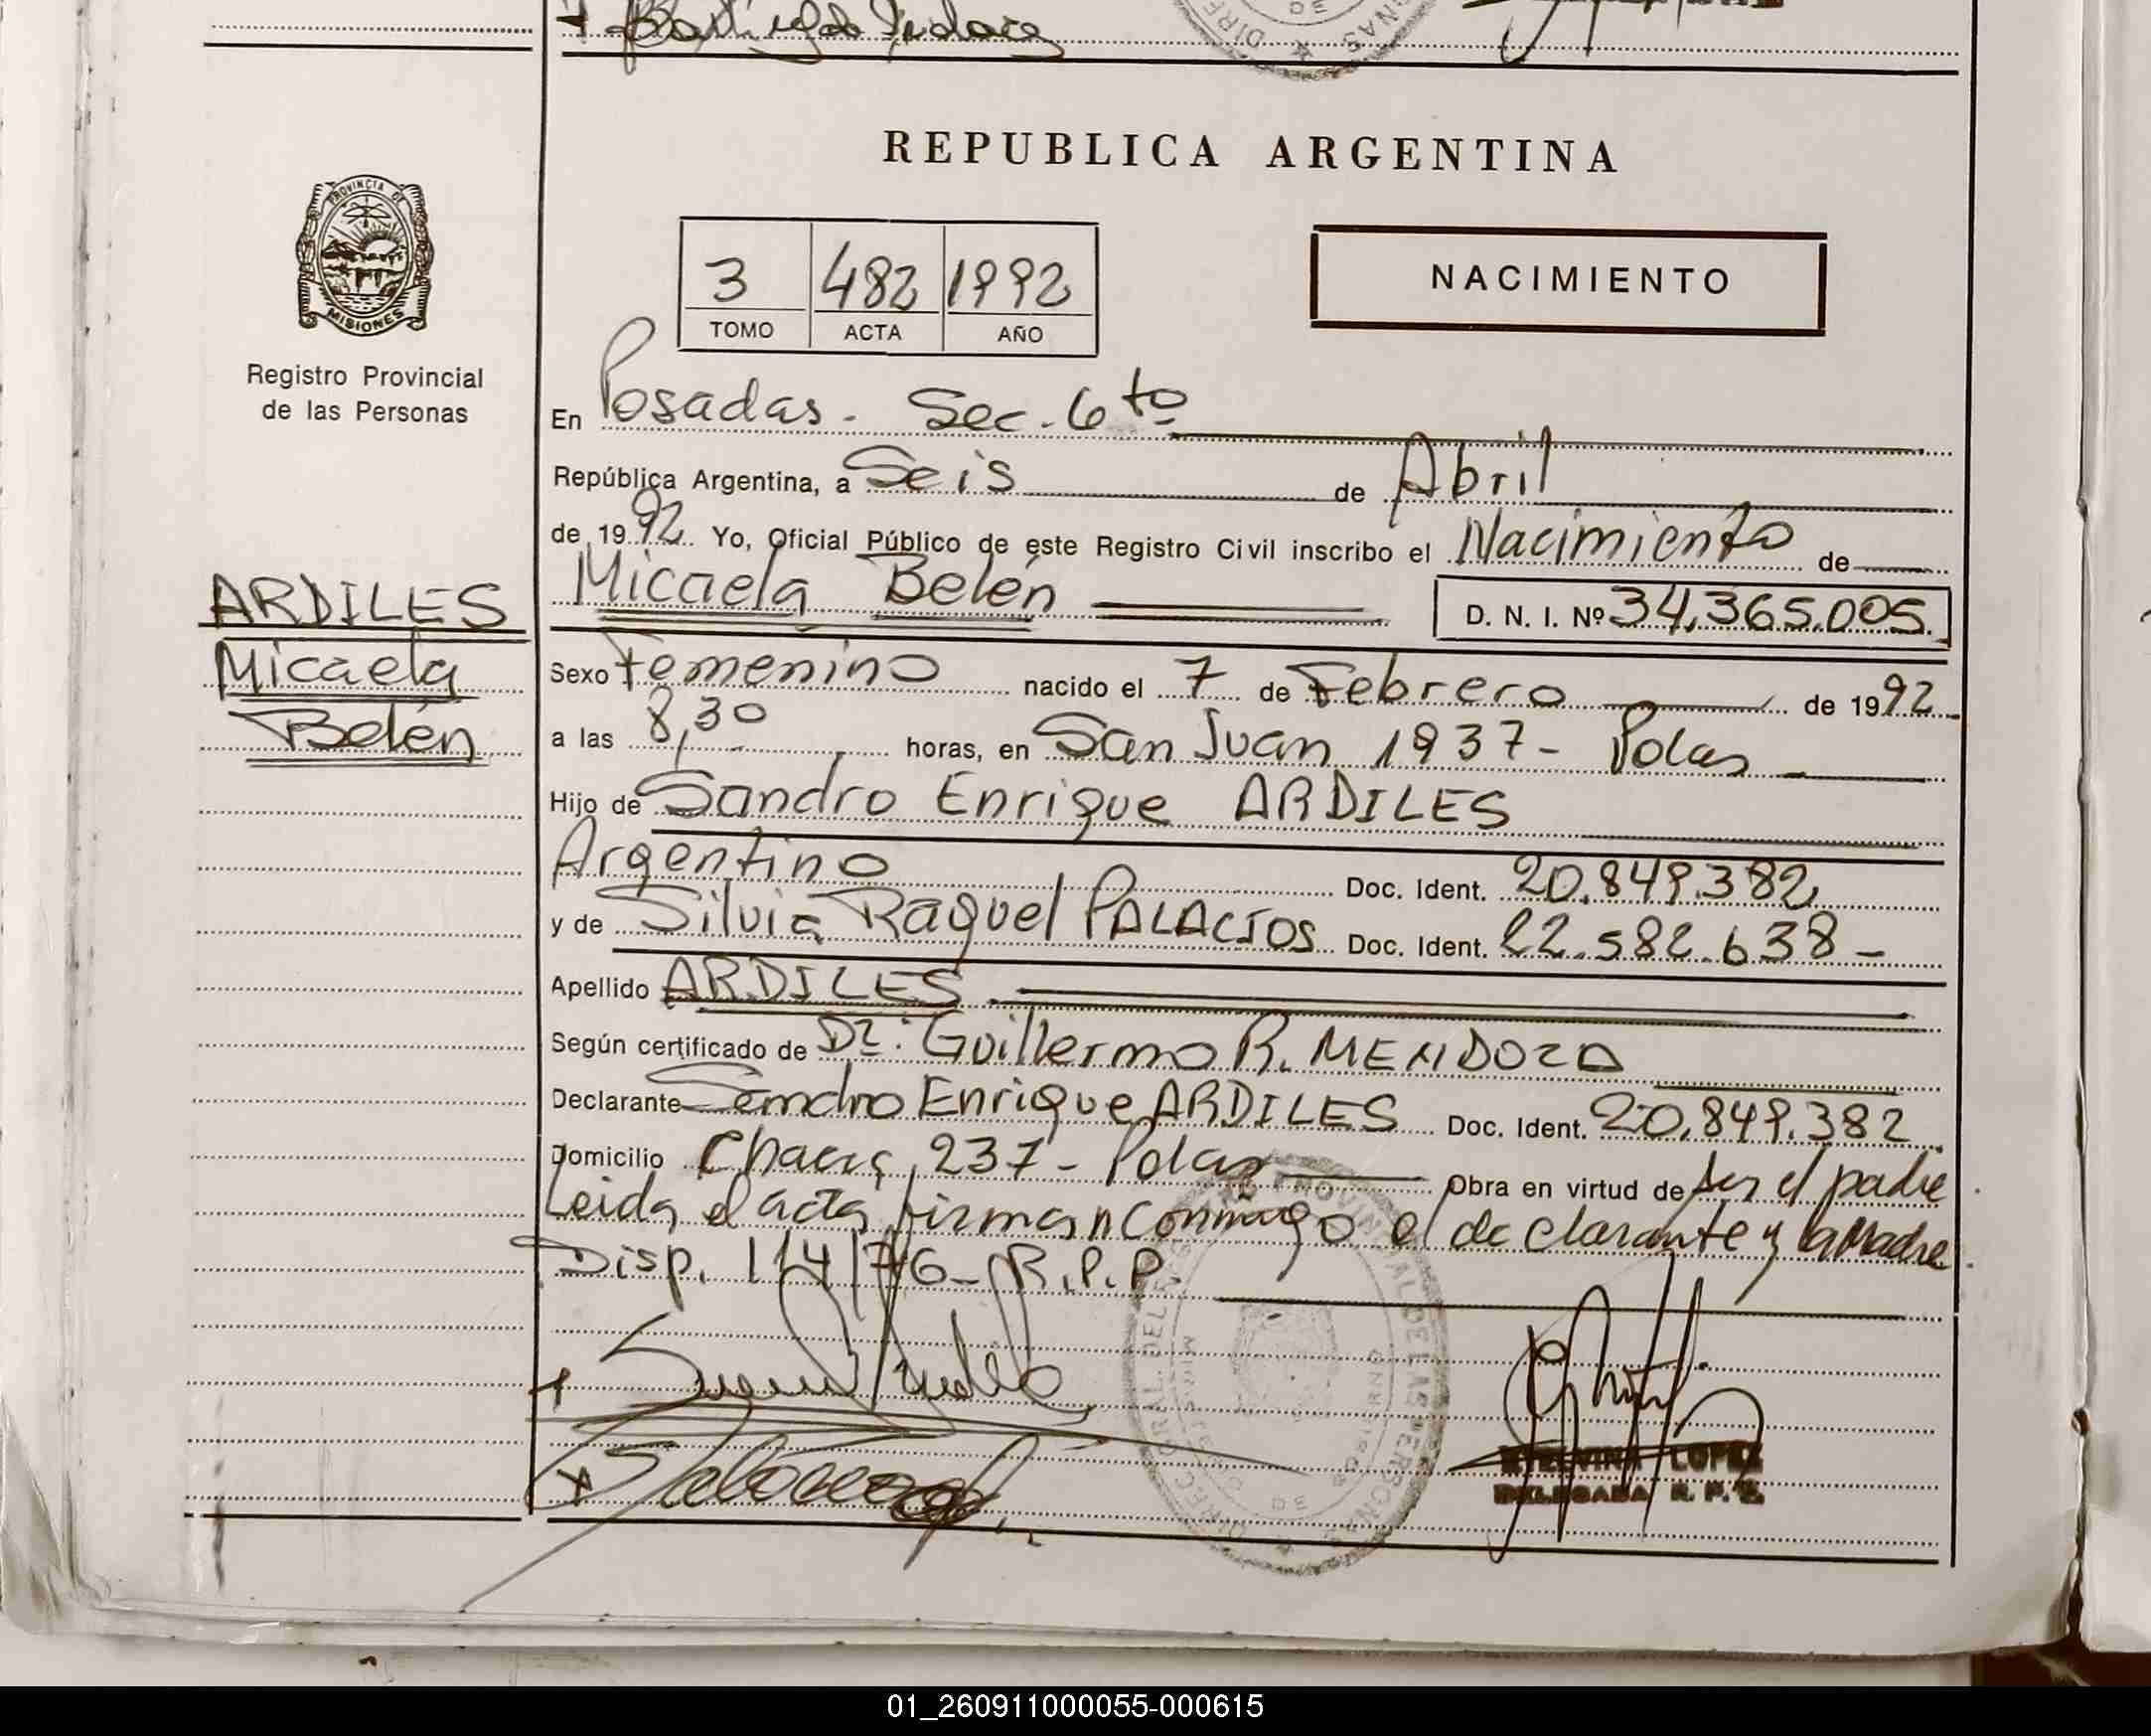 REPUBLICA ARGENTINA
PROVINCIA DE
MISIONES
Registro Provincial
de las Personas
3 482 1992
TOMO ACTA AÑO
NACIMIENTO
En Posadas. Sec. 6to
República Argentina, a Seis de Abril
de 1992. Yo, Oficial Público de este Registro Civil inscribo el Nacimiento de
ARDILES
Micaela
Belén
Micaela Belén D. N. I. Nº 34,365.005.
Sexo Femenino nacido el 7 de Febrero de 1992
a las 8,30 horas, en San Juan 1937 - Pdas
Hijo de Sandro Enrique ARDILES
Argentino Doc. Ident. 20.849.382
y de Silvia Raquel PALACIOS Doc. Ident. 22.582.638 -
Apellido ARDILES
Según certificado de Dr. Guillermo R. MENDOZA
Declarante Sandro Enrique ARDILES Doc. Ident. 20.849.382
Domicilio Chacra 237 - Pdas Obra en virtud de ser el padre
Leida el acta firman conmigo el declarante y la Madre
Disp. 114/76 - R.P.P.
LOPEZ
DELEGADA R. P. P.
01_260911000055-000615